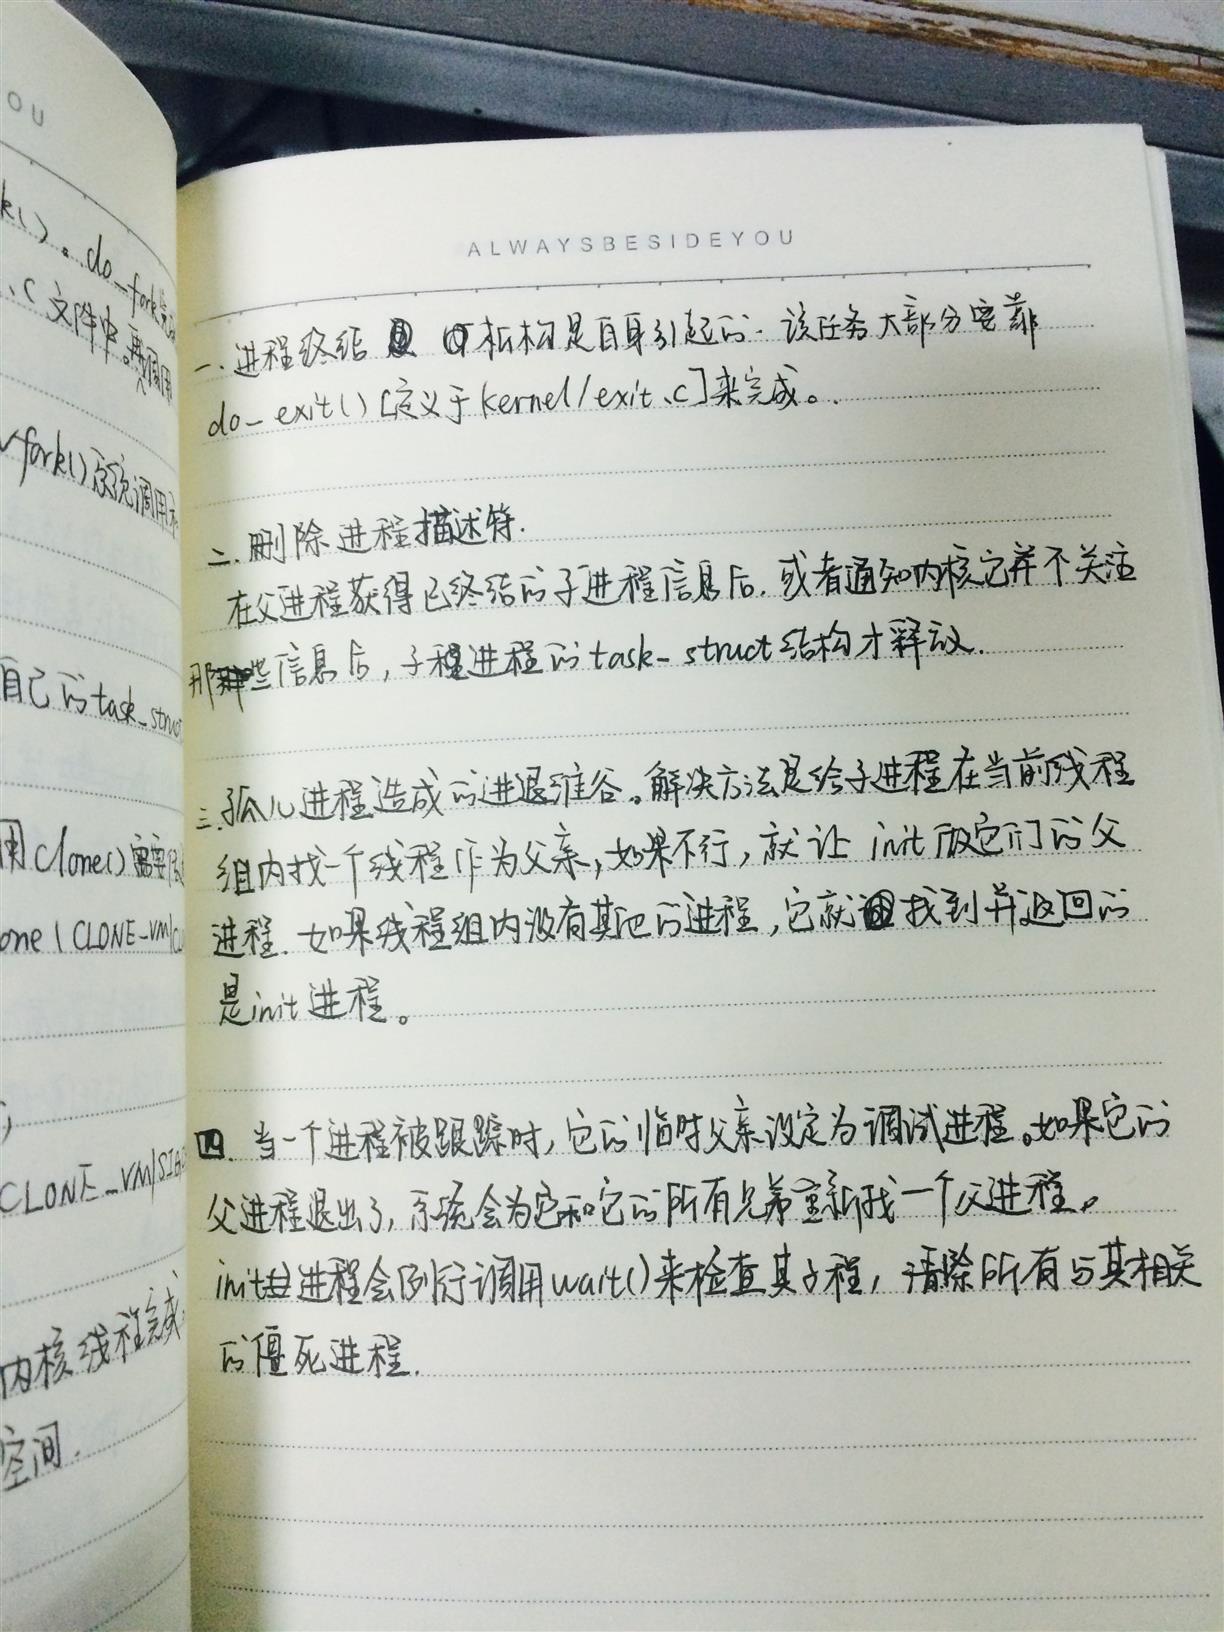 OU
k()。do_fork完成
.c文件中。再调用
vfork()系统调用和
自己的task_struct
用clone()需要
one(CLONE_VM|CL
CLONE_VM|SIG
内核线程完成
空间.
ALWAYSBESIDEYOU
一.进程终结 的析构是自身引起的.该任务大部分要靠
do_exit()[定义于kernel/exit.c]来完成。
二.删除进程描述符.
在父进程获得已终结的子进程信息后.或者通知内核它并不关注
那些信息后,子进程的task_struct结构才释放.
三.孤儿进程造成的进退维谷。解决方法是给子进程在当前线程
组内找一个线程作为父亲,如果不行,就让init做它们的父
进程.如果线程组内没有其他的进程,它就找到并返回的
是init进程。
四.当一个进程被跟踪时,它的临时父亲设定为调试进程。如果它的
父进程退出了,系统会为它和它的所有兄弟重新找一个父进程。
init进程会例行调用wait()来检查其子程,清除所有与其相关
的僵死进程.